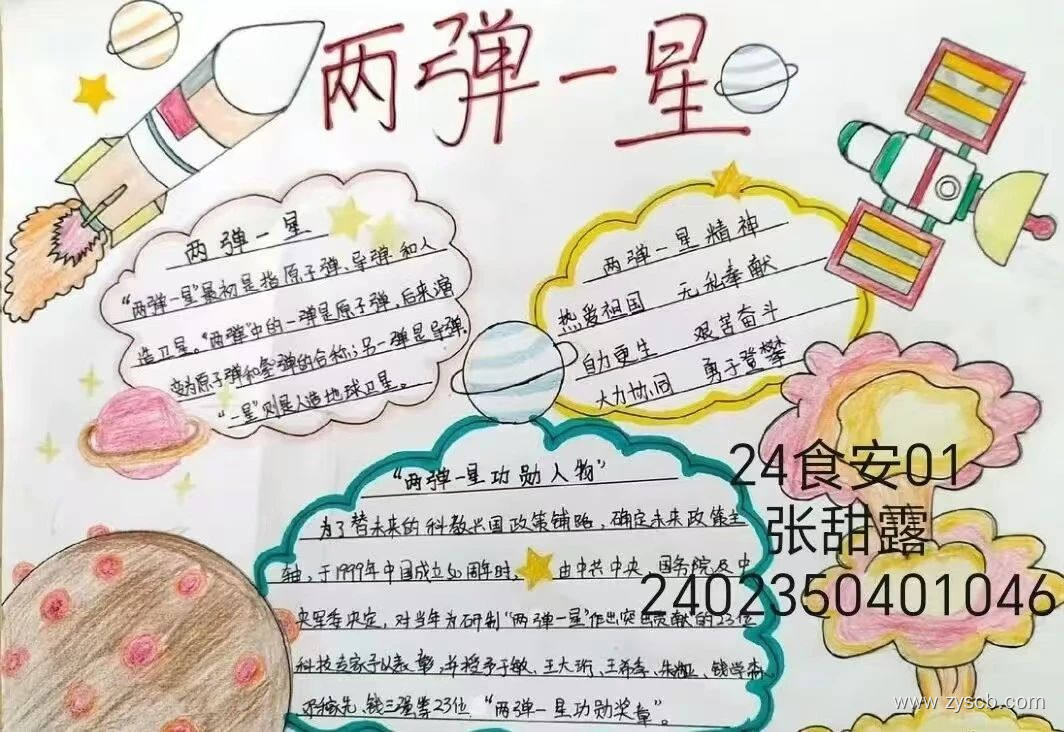 两弹一星
两弹一星
“两弹一星”最初是指原子弹、导弹和人
造卫星。“两弹”中的一弹是原子弹，后来演
变为原子弹和氢弹的合称；另一弹是导弹.
“一星”则是人造地球卫星。
两弹一星精神
热爱祖国 无私奉献
自力更生 艰苦奋斗
大力协同 勇于登攀
“两弹一星功勋人物”
为了替未来的科教兴国政策铺路，确定未来政策主
轴，于1999年中国成立50周年时，由中共中央、国务院及中
央军委决定，对当年为研制“两弹一星”作出突出贡献的23位
科技专家予以表彰，并授予于敏、王大珩、王希季、朱光亚、钱学森、
邓稼先、钱三强等23位“两弹一星功勋奖章”。
24食安01
张甜露
2402350401046
www.zyscb.com